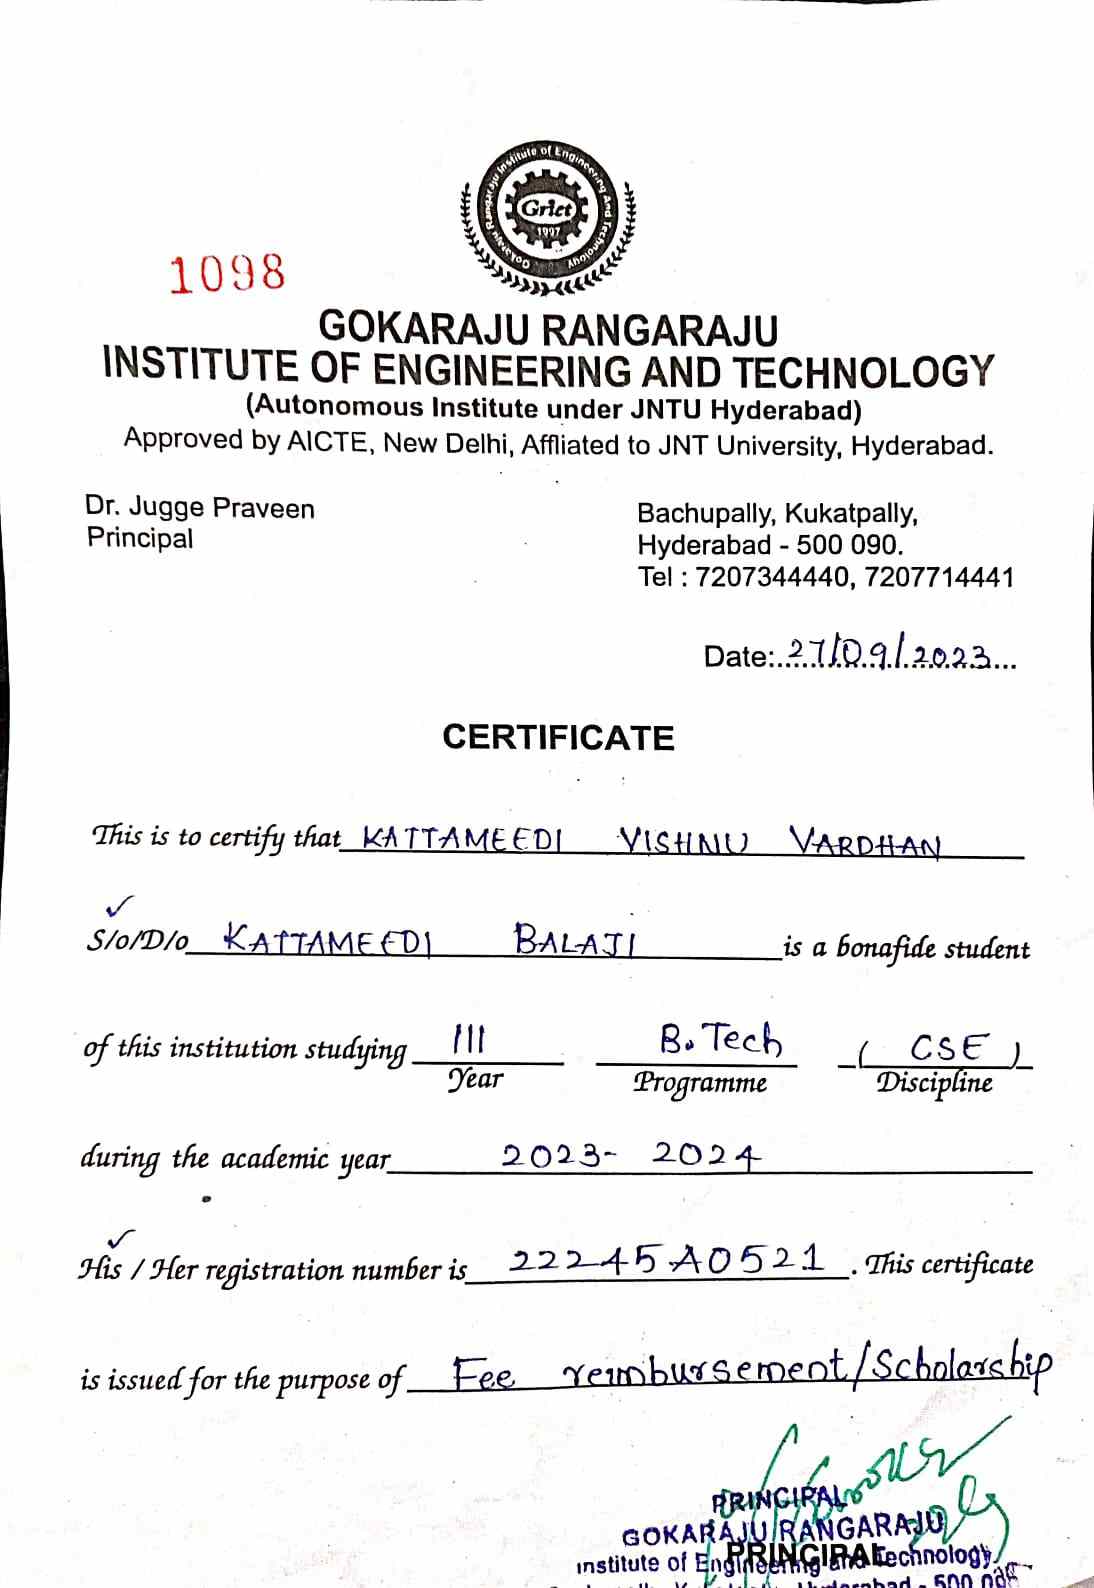 Gokaraju Rangaraju Institute of Engineering And Technology
Griet
1997
1098
GOKARAJU RANGARAJU
INSTITUTE OF ENGINEERING AND TECHNOLOGY
(Autonomous Institute under JNTU Hyderabad)
Approved by AICTE, New Delhi, Affliated to JNT University, Hyderabad.
Dr. Jugge Praveen
Principal
Bachupally, Kukatpally,
Hyderabad - 500 090.
Tel : 7207344440, 7207714441
Date:..27/09/2023...
CERTIFICATE
This is to certify that KATTAMEEDI VISHNU VARDHAN
S/o/D/o KATTAMEEDI BALAJI is a bonafide student
of this institution studying III B.Tech ( CSE )
Year Programme Discipline
during the academic year 2023- 2024
His / Her registration number is 22245A0521 . This certificate
is issued for the purpose of Fee reimbursement/Scholarship
PRINCIPAL
GOKARAJU RANGARAJU
PRINCIPAL
Institute of Engineering and Technology